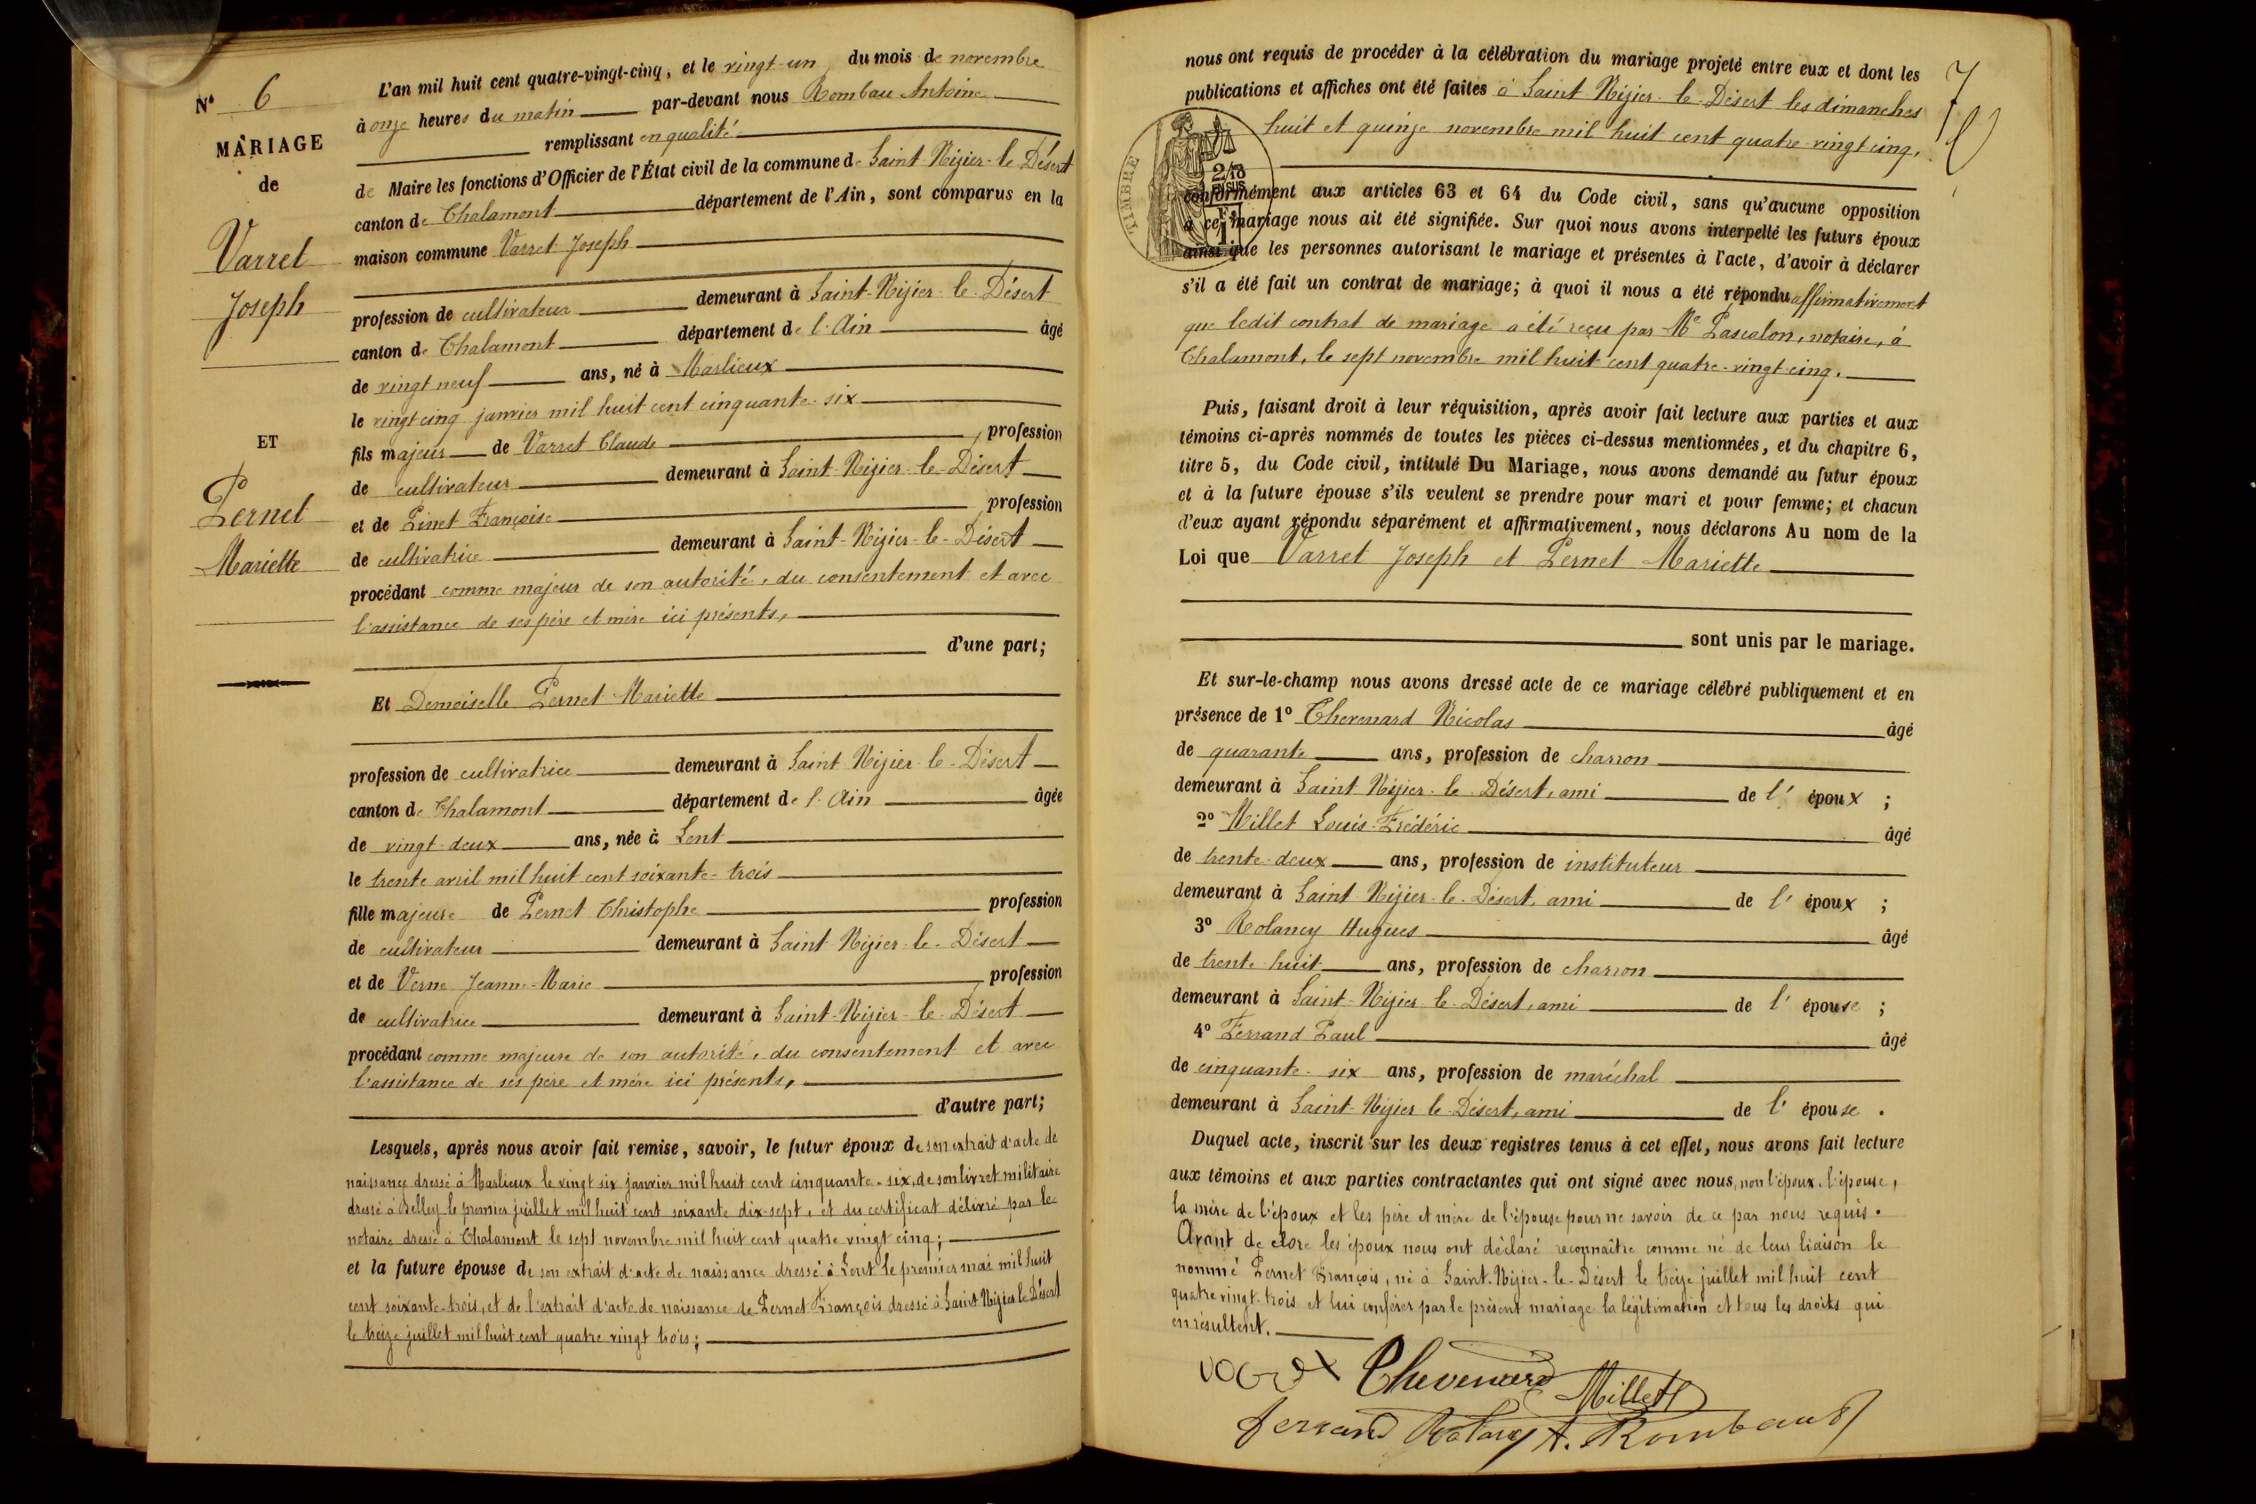 N° 6
MARIAGE
de
Varret
Joseph
ET
Pernet
Mariette
L'an mil huit cent quatre-vingt-cinq, et le vingt-un du mois de novembre
à onze heures du matin par-devant nous Rombau Antoine
remplissant en qualité
de Maire les fonctions d'Officier de l'État civil de la commune de Saint Nizier-le-Désert
canton de Chalamont département de l'Ain, sont comparus en la
maison commune Varret Joseph
profession de cultivateur demeurant à Saint-Nizier-le-Désert
canton de Chalamont département de l'Ain âgé
de vingt neuf ans, né à Marlieux
le vingt cinq janvier mil huit cent cinquante-six
fils majeur de Varret Claude, profession
de cultivateur demeurant à Saint-Nizier-le-Désert
et de Pinet Françoise profession
de cultivatrice demeurant à Saint-Nizier-le-Désert
procédant comme majeur de son autorité, du consentement et avec
l'assistance de ses père et mère ici présents,
d'une part;
Et Demoiselle Pernet Mariette
profession de cultivatrice demeurant à Saint Nizier-le-Désert
canton de Chalamont département de l'Ain âgée
de vingt-deux ans, née à Lent
le trente avril mil huit cent soixante-trois
fille majeure de Pernet Christophe profession
de cultivateur demeurant à Saint-Nizier-le-Désert
et de Verne Jeanne-Marie profession
de cultivatrice demeurant à Saint-Nizier-le-Désert
procédant comme majeure de son autorité, du consentement et avec
l'assistance de ses père et mère ici présents,
d'autre part;
Lesquels, après nous avoir fait remise, savoir, le futur époux de son extrait d'acte de
naissance dressé à Marlieux le vingt six janvier mil huit cent cinquante-six, de son livret militaire
dressé à Belley le premier juillet mil huit cent soixante dix-sept, et du certificat délivré par le
notaire dressé à Chalamont le sept novembre mil huit cent quatre vingt cinq;
et la future épouse de son extrait d'acte de naissance dressé à Lent le premier mai mil huit
cent soixante-trois, et de l'extrait d'acte de naissance de Pernet François dressé à Saint Nizier le Désert
le treize juillet mil huit cent quatre vingt trois;
7
nous ont requis de procéder à la célébration du mariage projeté entre eux et dont les
publications et affiches ont été faites à Saint Nizier-le-Désert les dimanches
huit et quinze novembre mil huit cent quatre-vingt cinq,
TIMBRE
conformément aux articles 63 et 64 du Code civil, sans qu'aucune opposition
à ce mariage nous ait été signifiée. Sur quoi nous avons interpellé les futurs époux
ainsi que les personnes autorisant le mariage et présentes à l'acte, d'avoir à déclarer
s'il a été fait un contrat de mariage; à quoi il nous a été répondu affirmativement
que ledit contrat de mariage a été reçu par Me Pascalon, notaire, à
Chalamont, le sept novembre mil huit cent quatre-vingt-cinq.
Puis, faisant droit à leur réquisition, après avoir fait lecture aux parties et aux
témoins ci-après nommés de toutes les pièces ci-dessus mentionnées, et du chapitre 6,
titre 5, du Code civil, intitulé Du Mariage, nous avons demandé au futur époux
et à la future épouse s'ils veulent se prendre pour mari et pour femme; et chacun
d'eux ayant répondu séparément et affirmativement, nous déclarons Au nom de la
Loi que Varret Joseph et Pernet Mariette
sont unis par le mariage.
Et sur-le-champ nous avons dressé acte de ce mariage célébré publiquement et en
présence de 1° Chevenard Nicolas âgé
de quarante ans, profession de charron
demeurant à Saint Nizier-le-Désert, ami de l'époux;
2° Millet Louis-Frédéric âgé
de trente-deux ans, profession de instituteur
demeurant à Saint Nizier-le-Désert, ami de l'époux;
3° Rolancy Hugues âgé
de trente-huit ans, profession de charron
demeurant à Saint-Nizier-le-Désert, ami de l'épouse;
4° Ferrand Paul âgé
de cinquante-six ans, profession de maréchal
demeurant à Saint-Nizier le Désert, ami de l'épouse.
Duquel acte, inscrit sur les deux registres tenus à cet effet, nous avons fait lecture
aux témoins et aux parties contractantes qui ont signé avec nous, non l'époux, l'épouse,
la mère de l'époux et les père et mère de l'épouse pour ne savoir de ce par nous requis.
Avant de clore les époux nous ont déclaré reconnaître comme né de leur liaison le
nommé Pernet François, né à Saint-Nizier-le-Désert le treize juillet mil huit cent
quatre vingt-trois et lui conférer par le présent mariage la légitimation et tous les droits qui
en résultent.
Chevenard
Millet
Ferrand Rolancy A. Rombaud